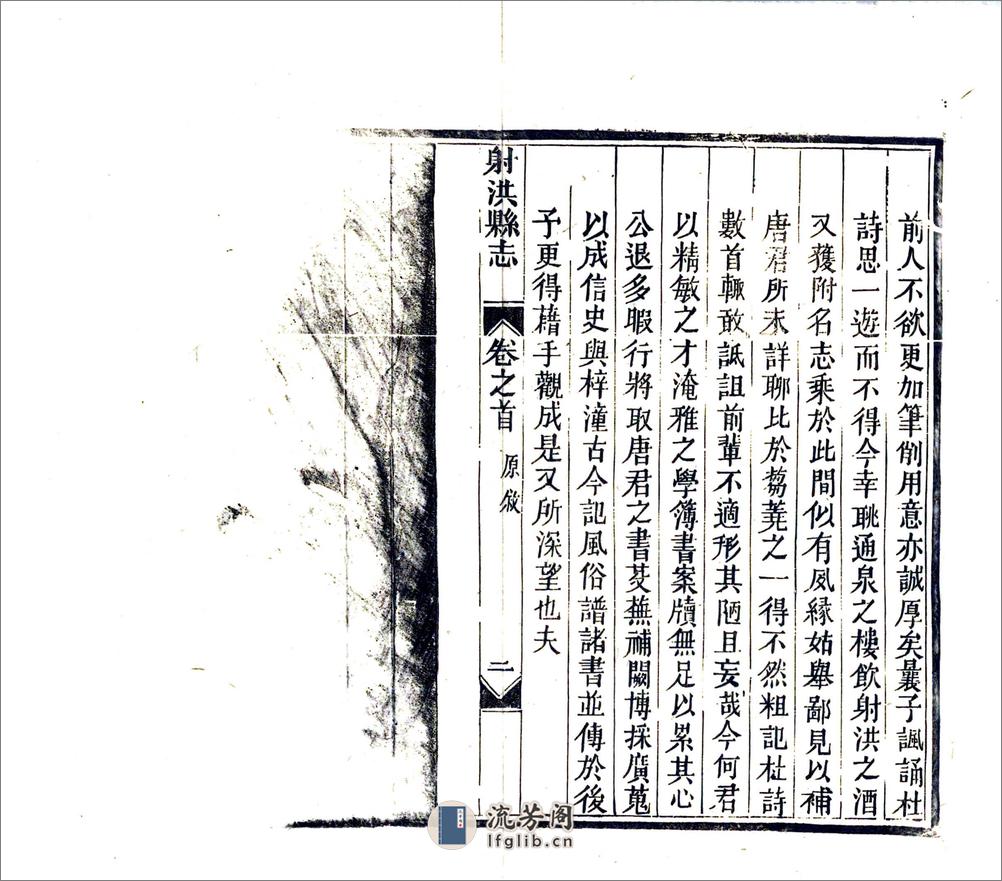 前人不欲更加筆削用意亦誠厚矣曩予諷誦杜
詩思一遊而不得今幸眺通泉之樓飲射洪之酒
又獲附名志乘於此間似有夙緣姑舉鄙見以補
唐君所未詳聊比於芻蕘之一得不然粗記杜詩
數首輒敢詆詛前輩不適形其陋且妄哉今何君
以精敏之才淹雅之學簿書案牘無足以累其心
公退多暇行將取唐君之書芟蕪補闕博採廣蒐
以成信史與梓潼古今記風俗譜諸書並傳於後
予更得藉手觀成是又所深望也夫
射洪縣志 卷之首 原敘 二
流芳阁
lfglib.cn